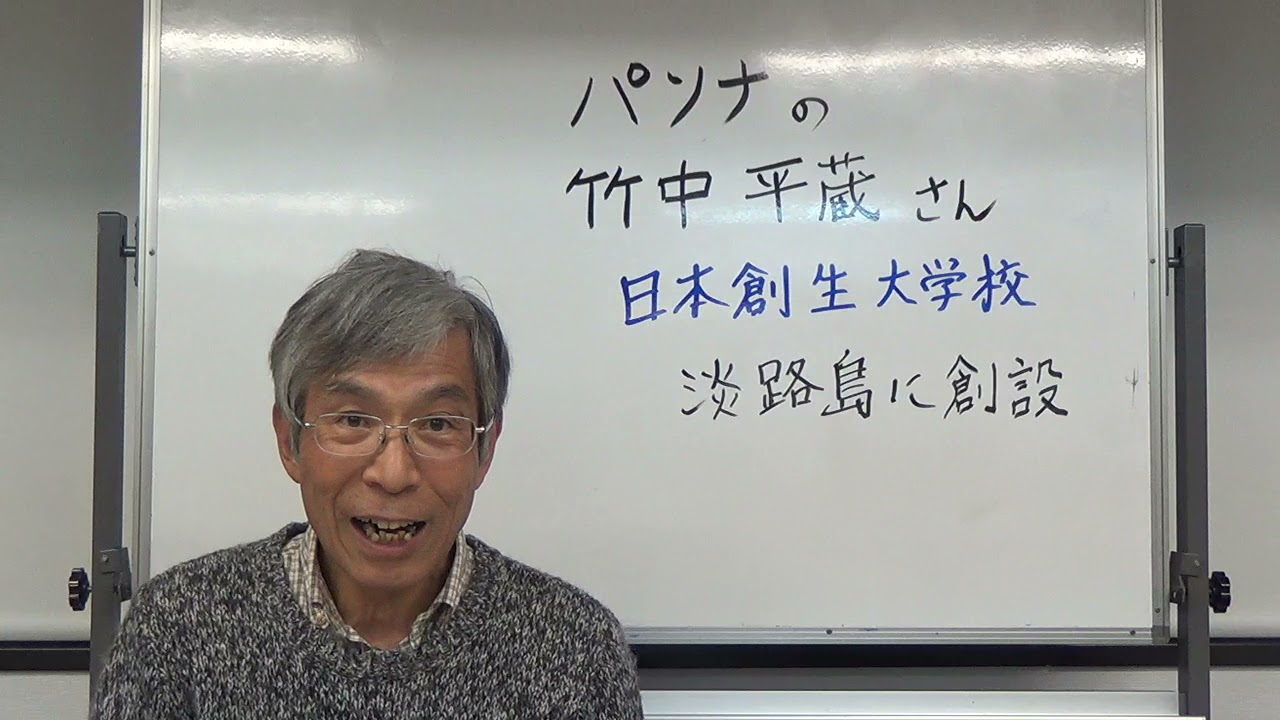 パソナの
竹中平蔵さん
日本創生大学校
淡路島に創設